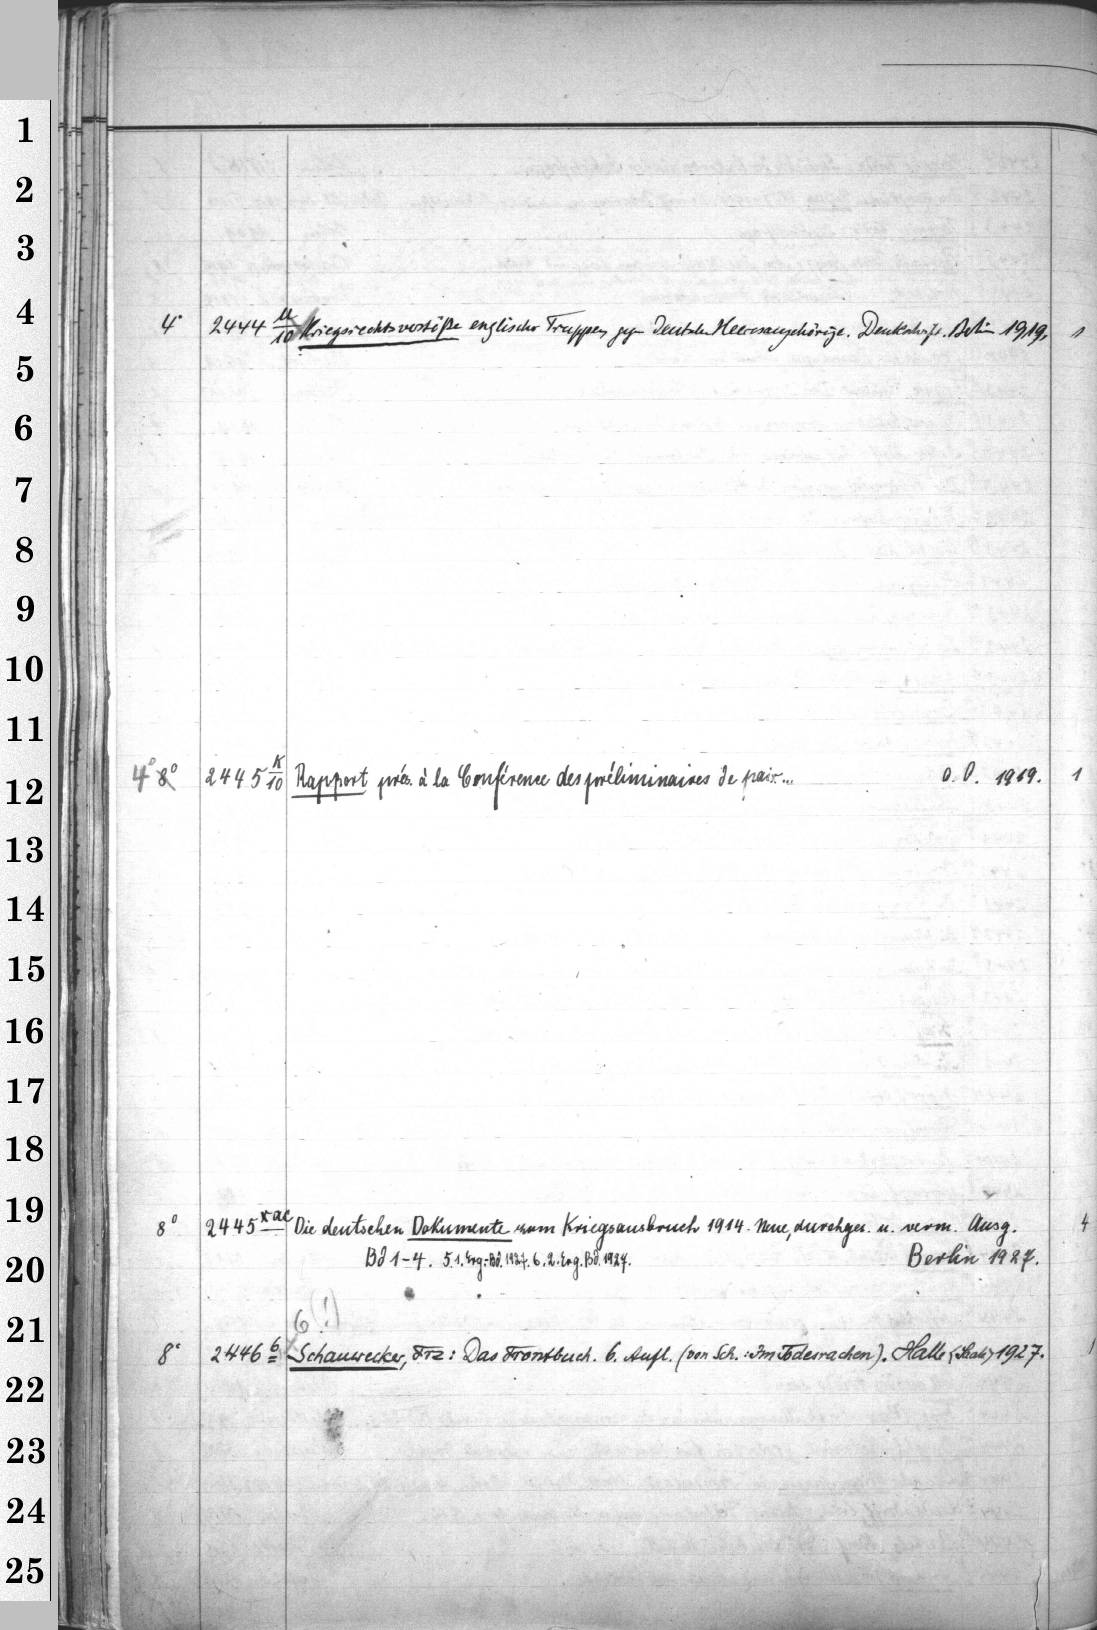 1
2
3
4
4° 2444 u/10 Kriegsrechtsverstöße englischer Truppen geg. deutsche Heeresangehörige. Denkschrift. Berlin 1919. 1
5
6
7
8
9
10
11
4° 8° 2445 K/10 Rapport prés. à la Conférence des préliminaires de paix... o. O. 1919. 1
12
13
14
15
16
17
18
19
8° 2445 xac Die deutschen Dokumente zum Kriegsausbruch 1914. Neue, durchges. u. verm. Ausg. 4
20
Bd 1-4. 5. 1. Erg.-Bd. 1927. 6. 2. Erg. Bd. 1927. Berlin 1927.
21
6 (!)
8° 2446 6 Schauwecker, Frz: Das Frontbuch. 6. Aufl. (von Sch.: Im Todesrachen). Halle (Saale) 1927. 1
22
23
24
25